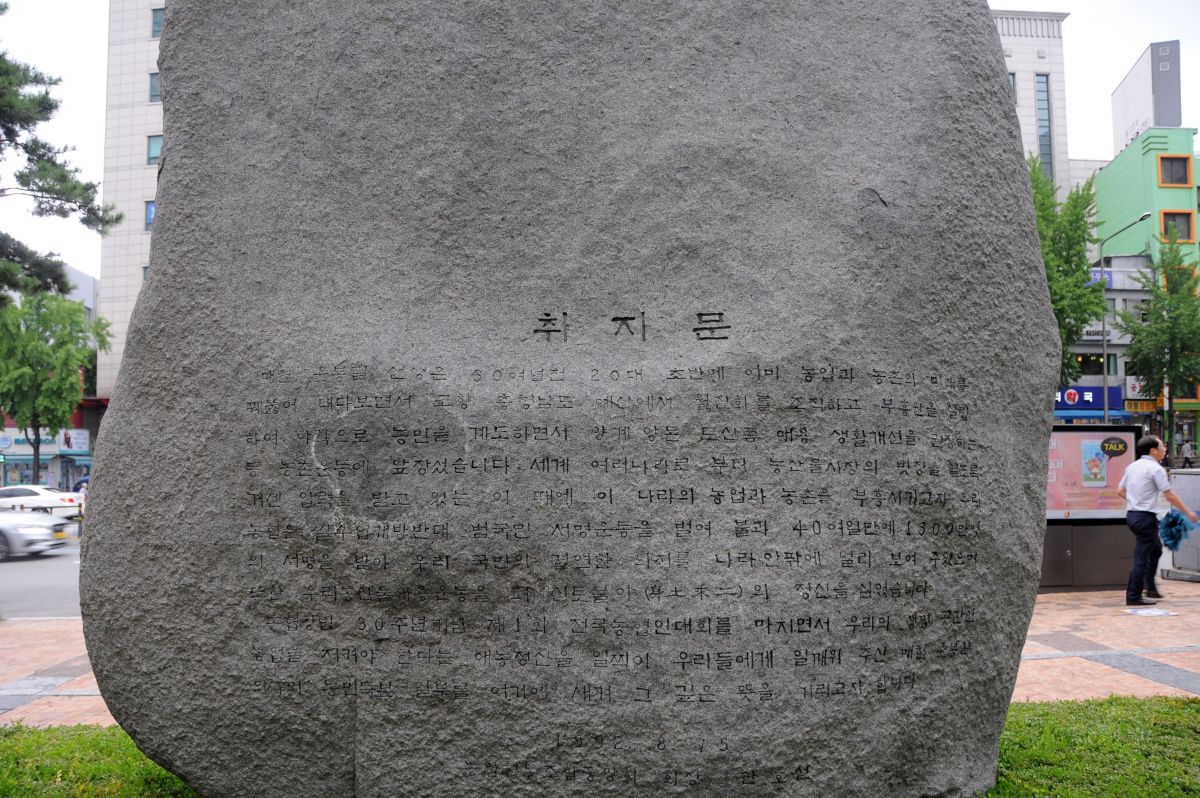 취지문
매헌 윤봉길 선생은 60여년전 20대 초반에 이미 농업과 농촌의 미래를
꿰뚫어 내다보면서 고향 충청남도 예산에서 월진회를 조직하고 부흥원을 설립
하여 야학으로 농민을 계도하면서 양계 양돈 토산품 애용 생활개선을 권장하는
등 농촌운동에 앞장섰습니다. 세계 여러나라로 부터 농산물시장의 빗장을 열도록
거센 압력을 받고 있는 이 때에 이 나라의 농업과 농촌을 부흥시키고자 우리
농협은 쌀수입개방반대 범국민 서명운동을 벌여 불과 40여일만에 1300만명
의 서명을 받아 우리 국민의 결연한 의지를 나라안팎에 널리 보여 주었으며
또한 우리농산물애용운동을 펴 신토불이(身土不二)의 정신을 심었습니다
농협창립 30주년기념 제1회 전국농협인대회를 마치면서 우리의 생명
농업을 지켜야 한다는 애농정신을 일찍이 우리들에게 일깨워 주신 매헌 윤봉길
의사의 농민독본 일부를 여기에 새겨 그 깊은 뜻을 기리고자 합니다
1992. 8. 15
농업협동조합중앙회 회장 한호선
약국
TALK